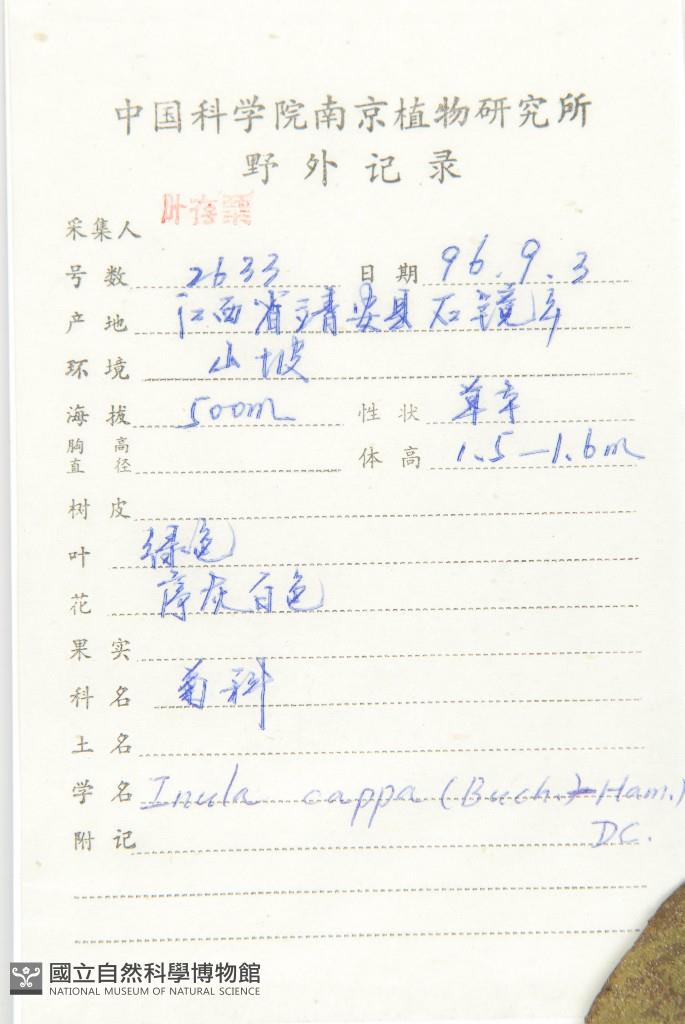 中国科学院南京植物研究所
野外记录
采集人 叶存粟
号数 2633 日期 96.9.3
产地 江西省靖安县石镜
环境 山坡
海拔 500m 性状 草本
胸高直径 体高 1.5—1.6m
树皮
叶 绿色
花 序灰白色
果实
科名 菊科
土名
学名 Inula cappa (Buch.)-Ham.)
DC.
附记
國立自然科學博物館
NATIONAL MUSEUM OF NATURAL SCIENCE